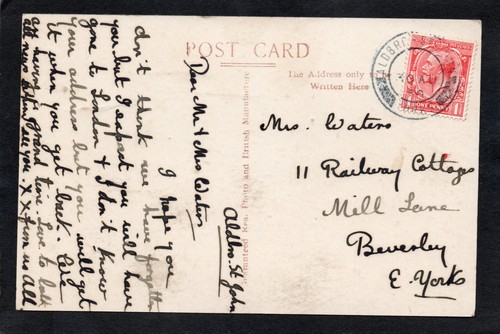 POST CARD
The Address only to be
Written Here
POST PENNY
Guaranteed Real Photo and British Manufacture
Mrs. Waters
11 Railway Cottages
Mill Lane
Beverley
E. Yorks
Aldbro. St John
Dear Mr & Mrs Waters
I hope you
don't think we have forgotten
you but I expect you will have
gone to London & I don't know
your address but you will get
it when you get back. We're
all having a grand time. Love to both
all news when see you x x from us All